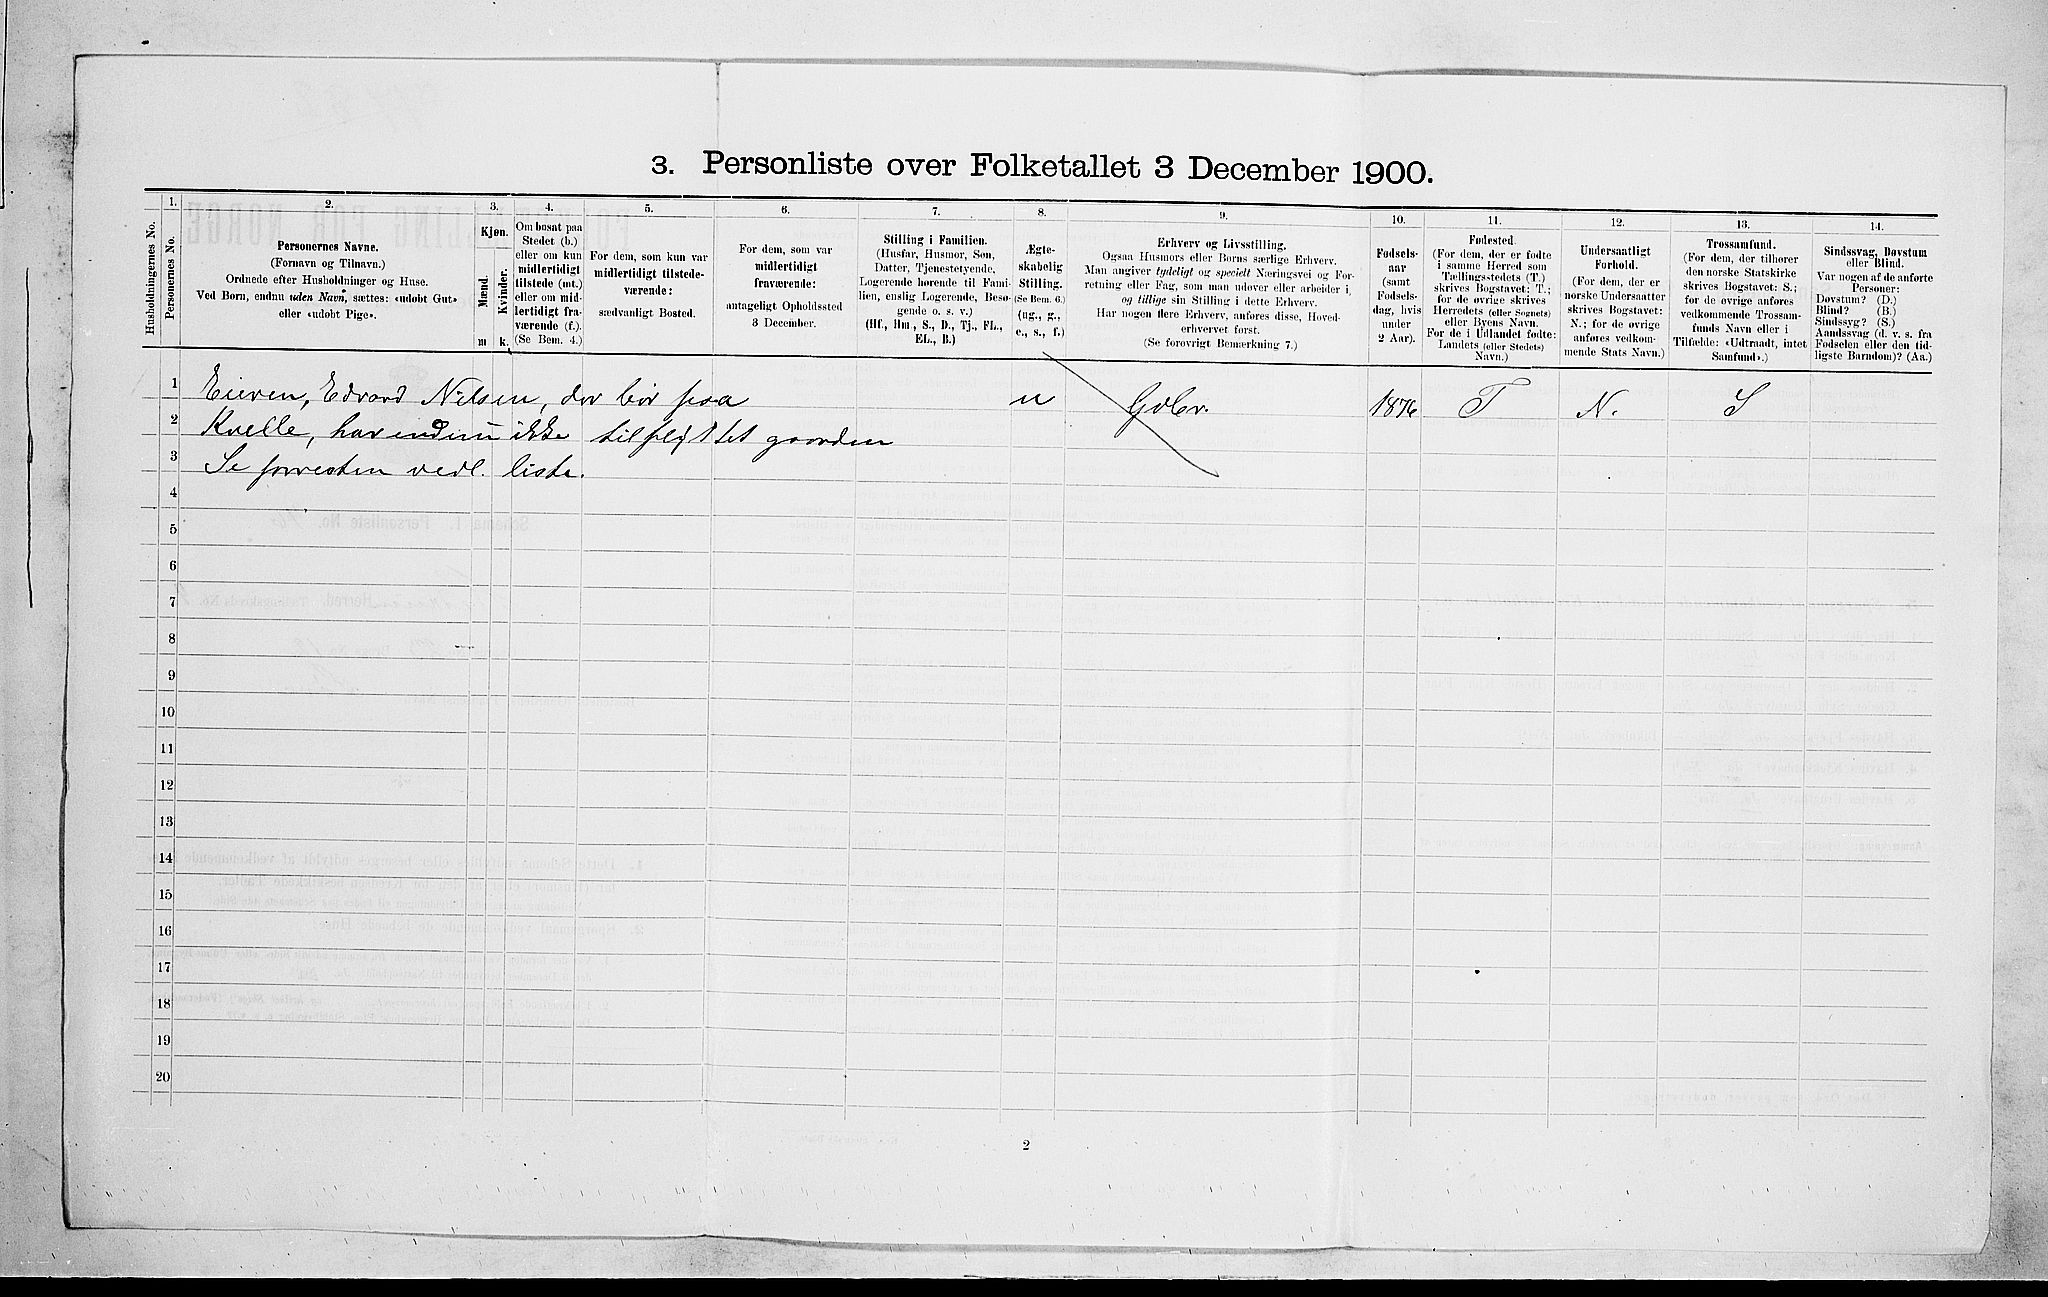 3. Personliste over Folketallet 3 December 1900.
1. 2. 3. 4. 5. 6. 7. 8. 9. 10. 11. 12. 13. 14.
Husholdningernes No.
Personernes No.
Personernes Navne.
(Fornavn og Tilnavn.)
Ordnede efter Husholdninger og Huse.
Ved Børn, endnu uden Navn, sættes: «udøbt Gut»
eller «udøbt Pige».
Kjøn.
Mænd.
Kvinder.
m k.
Om bosat paa
Stedet (b.)
eller om kun
midlertidigt
tilstede (mt.)
eller om mid-
lertidigt fra-
værende (f.).
(Se Bem. 4.)
For dem, som kun var
midlertidigt tilstede-
værende:
sædvanligt Bosted.
For dem, som var
midlertidigt
fraværende:
antageligt Opholdssted
3 December.
Stilling i Familien.
(Husfar, Husmor, Søn,
Datter, Tjenestetyende,
Logerende hørende til Fami-
lien, enslig Logerende, Besø-
gende o. s. v.)
(Hf., Hm., S., D., Tj., FL.,
EL., B.)
Ægte-
skabelig
Stilling.
(Se Bem. 6.)
(ug., g.,
e., s., f.)
Erhverv og Livsstilling.
Ogsaa Husmors eller Børns særlige Erhverv.
Man angiver tydeligt og specielt Næringsvei og For-
retning eller Fag, som man udøver eller arbeider i,
og tillige sin Stilling i dette Erhverv.
Har nogen flere Erhverv, anføres disse, Hoved-
erhvervet først.
(Se forøvrigt Bemærkning 7.)
Fødsels-
aar
(samt
Fødsels-
dag, hvis
under
2 Aar).
Fødested.
(For dem, der er fødte
i samme Herred som
Tællingsstedets (T.)
skrives Bogstavet: T.;
for de øvrige skrives
Herredets (eller Sognets)
eller Byens Navn.
For de i Udlandet fødte:
Landets (eller Stedets)
Navn.)
Undersaatligt
Forhold.
(For dem, der er
norske Undersaatter
skrives Bogstavet:
N.; for de øvrige
anføres vedkom-
mende Stats Navn.)
Trossamfund.
(For dem, der tilhører
den norske Statskirke
skrives Bogstavet: S.;
for de øvrige anføres
vedkommende Trossam-
funds Navn eller i
Tilfælde: «Udtraadt, intet
Samfund».)
Sindssvag, Døvstum
eller Blind.
Var nogen af de anførte
Personer:
Døvstum? (D.)
Blind? (B.)
Sindssyg? (S.)
Aandssvag (d. v. s. fra
Fødselen eller den tid-
ligste Barndom)? (Aa.)
1 Eieren, Edvard Nilsen, der bor paa u Gdbr. 1876 T N. S
2 Kvelle, har endnu ikke tilflyttet gaarden
3 Se forresten vedl. liste.
4
5
6
7
8
9
10
11
12
13
14
15
16
17
18
19
20
2